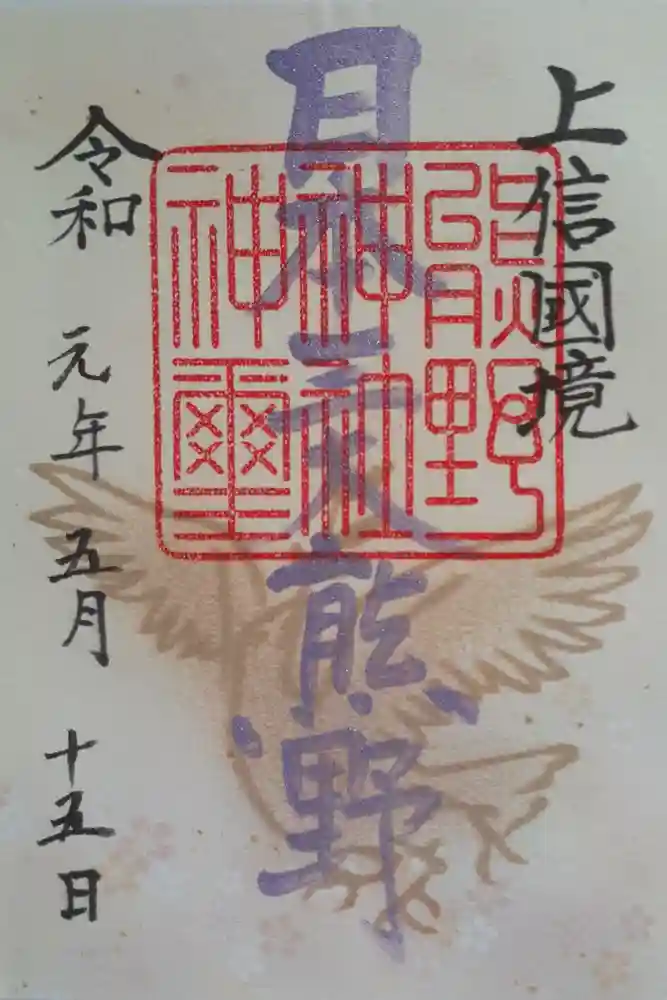 上信國境
日本三大熊野
熊野
神社
神璽
令和 元年 五月 十五日